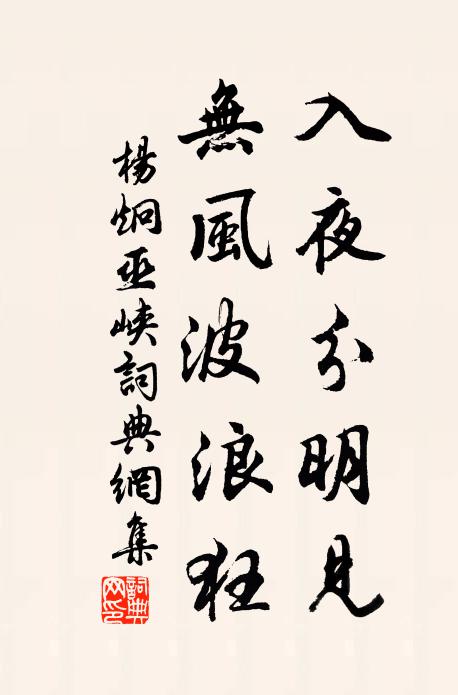 入夜分明見
無風波浪狂
楊炯巫峽詞典網集
詞典網印